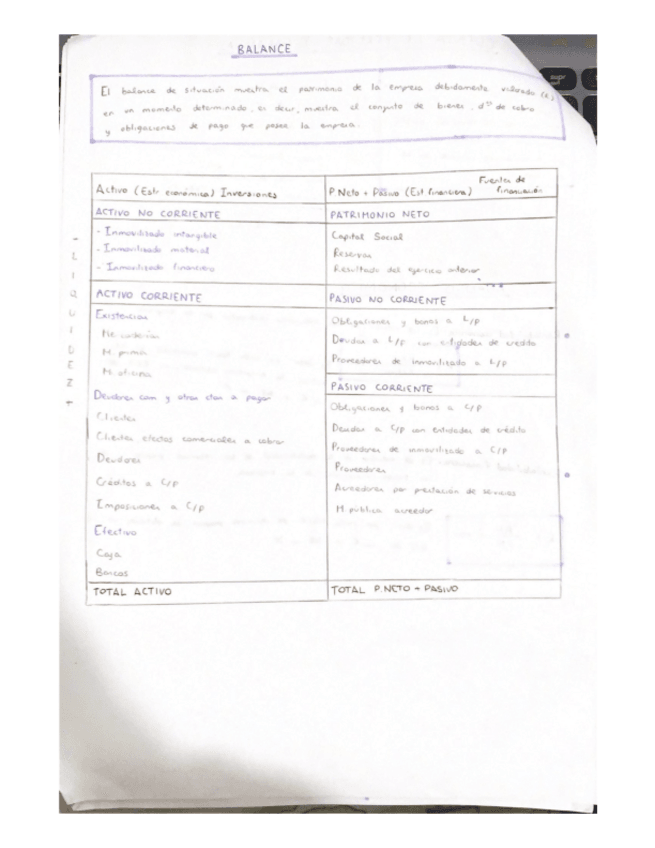 BALANCE
El balance de situación muestra el patrimonio de la empresa debidamente valorado (€)
en un momento determinado, es decir, muestra el conjunto de bienes, dºs de cobro
y obligaciones de pago que posee la empresa.
Activo (Estr. económica) Inversiones
P. Neto + Pasivo (Est financiera) Fuentes de financiación
ACTIVO NO CORRIENTE
PATRIMONIO NETO
- Inmovilizado intangible
- Inmovilizado material
- Inmovilizado financiero
Capital Social
Reservas
Resultado del ejercicio anterior
- LIQUIDEZ +
ACTIVO CORRIENTE
PASIVO NO CORRIENTE
Existencias
M. prima
Obligaciones y bonos a L/p
Deudas a L/p con entidades de crédito
Proveedores de inmovilizado a L/p
PASIVO CORRIENTE
Deudores com y otras ctas a pagar
Clientes
Clientes efectos comerciales a cobrar
Deudores
Créditos a C/p
Imposiciones a C/p
Efectivo
Caja
Bancos
Obligaciones y bonos a C/p
Deudas a C/p con entidades de crédito
Proveedores de inmovilizado a C/p
Proveedores
Acreedores por prestación de servicios
H pública acreedor
TOTAL ACTIVO
TOTAL P.NETO + PASIVO